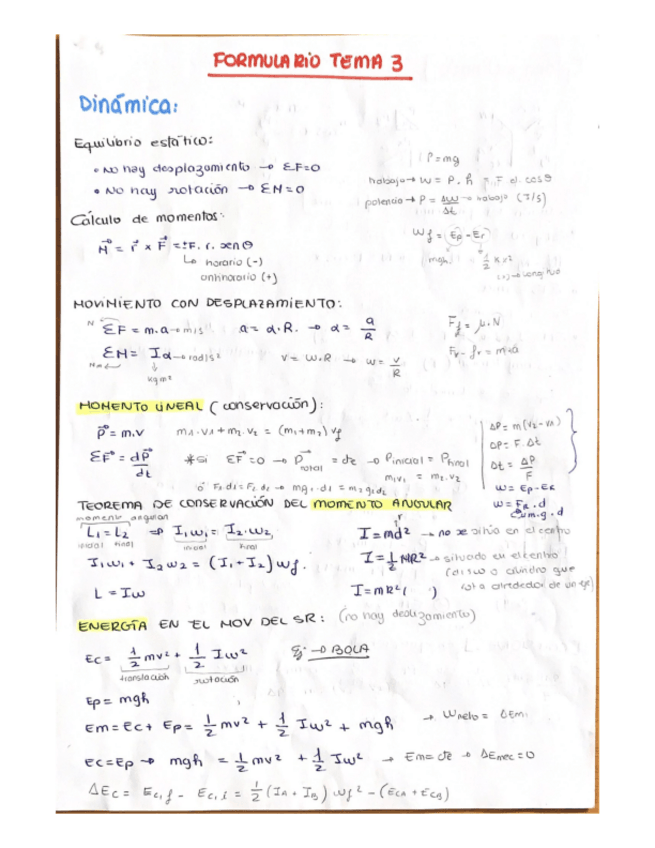 FORMULARIO TEMA 3
Dinámica:
Equilibrio estático:
• No hay desplazamiento → ΣF=0
• No hay rotación → ΣM=0
P=mg
trabajo → W = P.h = F.d.cosθ
potencia → P = ΔW/Δt → trabajo (J/s)
Cálculo de momentos:
M⃗ = r⃗ x F⃗ = ±F. r. senθ
↳ horario (-)
antihorario (+)
Wf = Ep - Er
mgh 1/2 K x²
MOVIMIENTO CON DESPLAZAMIENTO:
N ΣF = m.a → m/s² a = α.R. → α = a/R
Ff = μ.N
ΣM = Iα → rad/s² v = ω.R → ω = v/R
Fr - fr = m.a
Nm kgm²
MOMENTO LINEAL (conservación):
P⃗ = m.v m1.v1 + m2.v2 = (m1+m2) vf
ΔP = m(v2-v1)
ΔP = F.Δt
Δt = ΔP/F
W = Ep-ER
W = FR.d
μm.g.d
ΣF⃗ = dP⃗/dt *si ΣF⃗=0 → P⃗ total = cte → Pinicial = Pfinal
m1v1 = m2.v2
ó F1.d1=F2.d2 → mg1.d1 = m2g2d2
TEOREMA DE CONSERVACIÓN DEL MOMENTO ANGULAR
momento angular
L1=L2 ⇒ I1ω1 = I2.ω2
inicial final inicial final
I = md² → no se situa en el centro
I1ω1 + I2ω2 = (I1+I2)ωf.
I = 1/2 MR² → situado en el centro
(disco o cilindro que
rota alrededor de un eje)
L = Iω I = mR²( )
ENERGÍA EN EL MOV DEL SR: (no hay deslizamiento)
Ec = 1/2 mv² + 1/2 Iω² Ej: → BOLA
translación rotación
Ep = mgh
Em = Ec + Ep = 1/2 mv² + 1/2 Iω² + mgh → Wneto = ΔEm
Ec=Ep → mgh = 1/2 mv² + 1/2 Iω² → Em = cte → ΔEmec = 0
ΔEc = Ec,f - Ec,i = 1/2 (IA + IB) ωf² - (ECA + ECB)